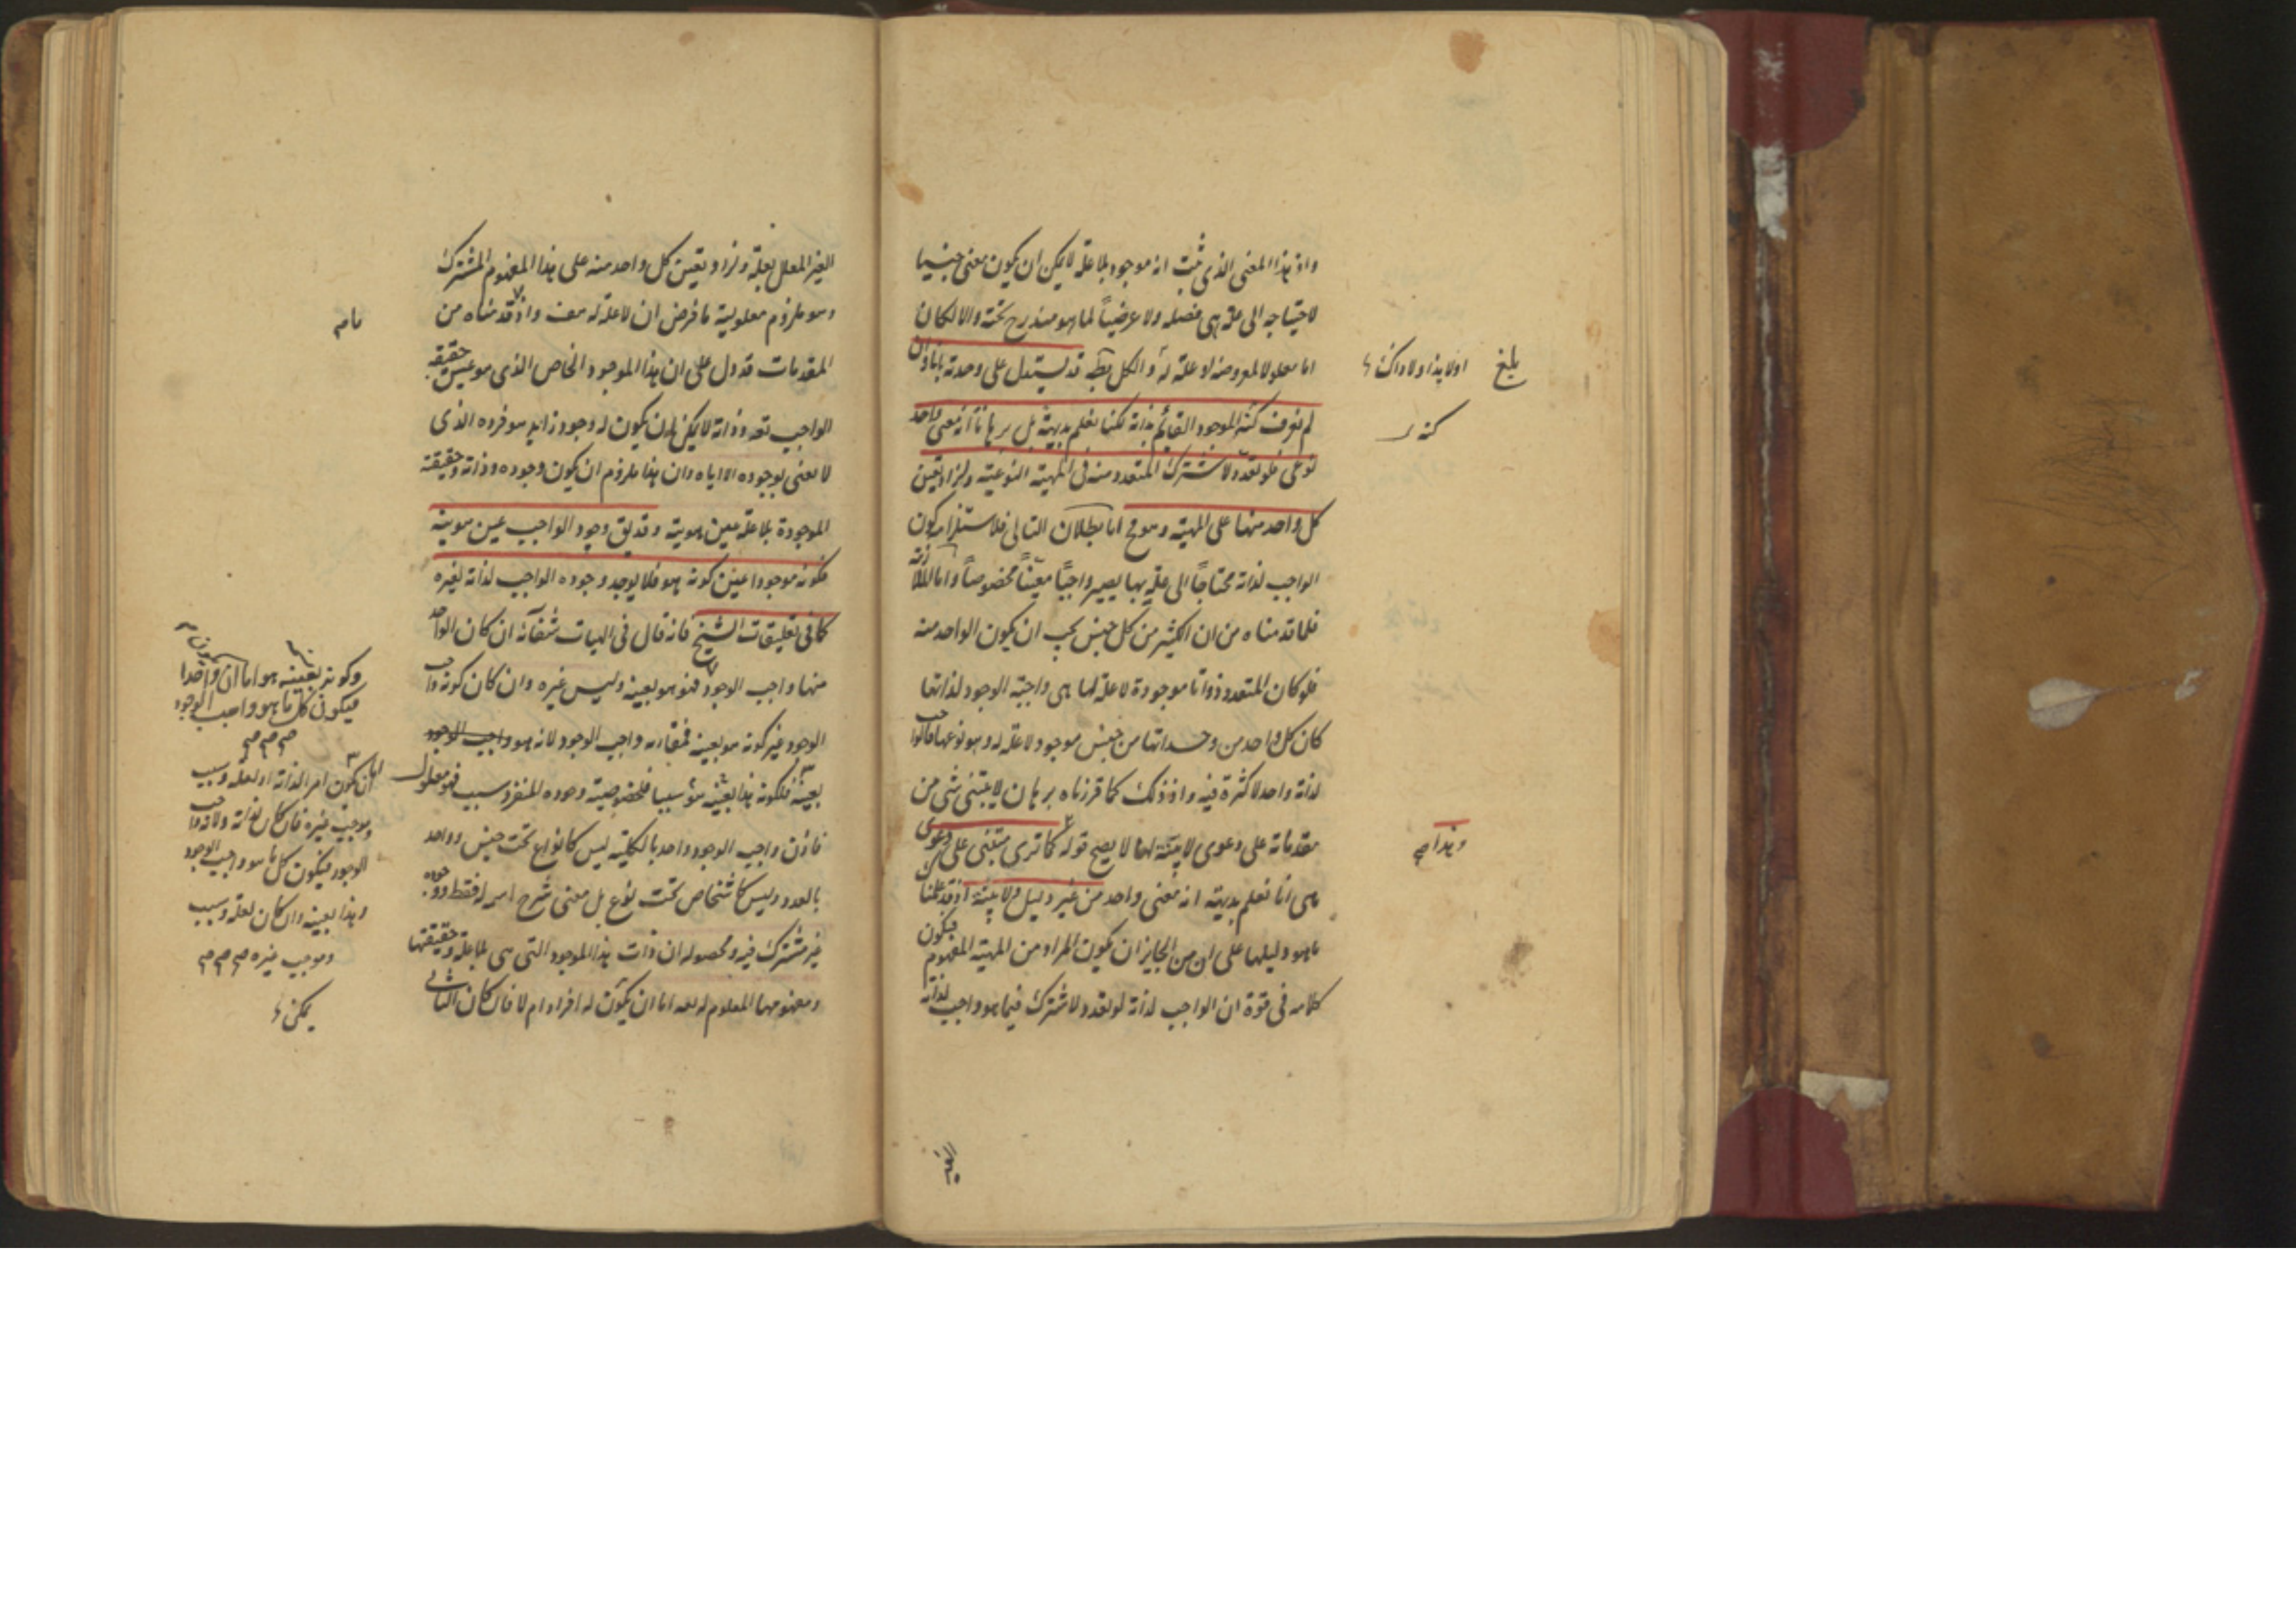 واذ هذا المعنى الذى ثبت انه موجود بلا علة لا يمكن ان يكون معنى جنسيا
لاحتياجه الى علة هى فصله ولا عرضياً لما هو مندرج تحته والا لكان
اما معلولا لمعروضه او علة له والكل بط قد يستدل على وحدته بانا وان
لم نعرف كنه الموجود القائم بذاته لكنا نعلم بديهة بل برهاناً انه معنى واحد
نوعى فلو تعدد لاشترك المتعدد منه فى المهية النوعية ولزاد تعين
كل واحد منها على المهية وهو مح اما بطلان التالى فلاستلزامه كون
الواجب لذاته محتاجاً الى علة بها يصير واجباً معيناً مخصوصاً واما الملازمة
فلما قدمناه من ان الكثير من كل جنس يجب ان يكون الواحد منه
فلو كان المتعدد ذواتا موجودة لا علة لها هى واجبة الوجود لذاتها
كان كل واحد من وحداتها من جنس موجود لا علة له وهو نوعها فالواجب
لذاته واحد لا كثرة فيه واذ ذلك كما قررناه برهان لا يبتنى شئ من
مقدماته على دعوى لا بينة لها لا يصح قوله كما ترى مبتنى على دعوى
هى انا نعلم بديهة انه معنى واحد من غير دليل ولا بينة اذ قد علمنا
ما هو دليلها على ان من الجايز ان يكون المراد من المهية المفهوم فيكون
كلامه فى قوة ان الواجب لذاته لو تعدد لاشترك فيما هو واجب لذاته
بلغ
اولا
كنه
وهذا صح
الغير
الغير المعلل بعلة ولزاد تعين كل واحد منه على هذا المفهوم المشترك
وهو ملزوم معلولية ما فرض ان لا علة له هف واذ قدمناه من
المقدمات قد دل على ان هذا الموجود الخاص الذى هو عين حقيقة
الواجب تعه وذاته لا يمكن ان يكون له وجود زايد هو فرده الذى
لا نعنى بوجوده الا اياه وان هذا ملزوم ان يكون وجوده وذاته وحقيقته
الموجودة بلا علة عين هويته وقد يق وجود الواجب عين هويته
فكونه موجودا عين كونه هو فلا يوجد وجوده الواجب لذاته لغيره
كما فى تعليقات الشيخ فانه قال فى الهيات شفائه ان كان الواحد
منها واجب الوجود فهو هو بعينه وليس غيره وان كان كونه واجب
الوجود غير كونه هو بعينه فمقارنه واجب الوجود لانه هو واجب الوجود
بعينه فلكونه هذا بعينه سبب فلخصوصية وجوده المنفرد سبب فهو معلول
فاذن واجب الوجود واحد بالكلية ليس كانواع تحت جنس وواحد
بالعدد وليس كاشخاص تحت نوع بل معنى شرح اسمه له فقط ووجوده
غير مشترك فيه ومحصوله ان ذات هذا الموجود التى هى بلا علة وحقيقتها
ومفهومها المعلوم له تعه اما ان يكون له افراد ام لا فان كان الثانى
وكونه بعينه هو اما ان واحدا
فيكون كل ما هو واجب الوجود
صح صح صح
اما ان يكون امر الذاته او لعلة وسبب
وموجب غيره فان كان لذاته ولانه واجب
الوجود فيكون كل ما هو واجب الوجود
وهذا بعينه وان كان لعلة وسبب
وموجب غيره صح صح صح
يمكن